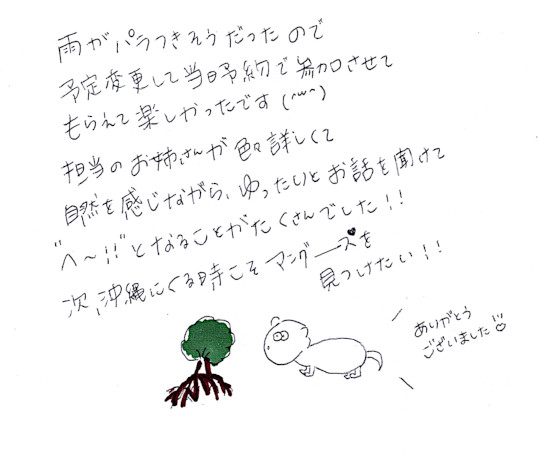 雨がパラつきそうだったので
予定変更して当日予約で参加させて
もらえて楽しかったです(^w^)
担当のお姉さんが色々詳しくて
自然を感じながら、ゆったりとお話を聞けて
"へ〜!!"となることがたくさんでした!!
次、沖縄にくる時こそマングースを
見つけたい!!
ありがとう
ございました